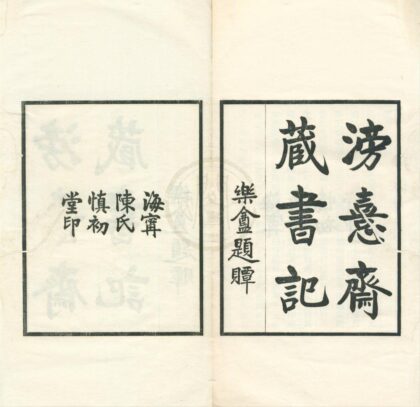 滂憙齋
藏書記
樂盦題贉
海寧
陳氏
慎初
堂印